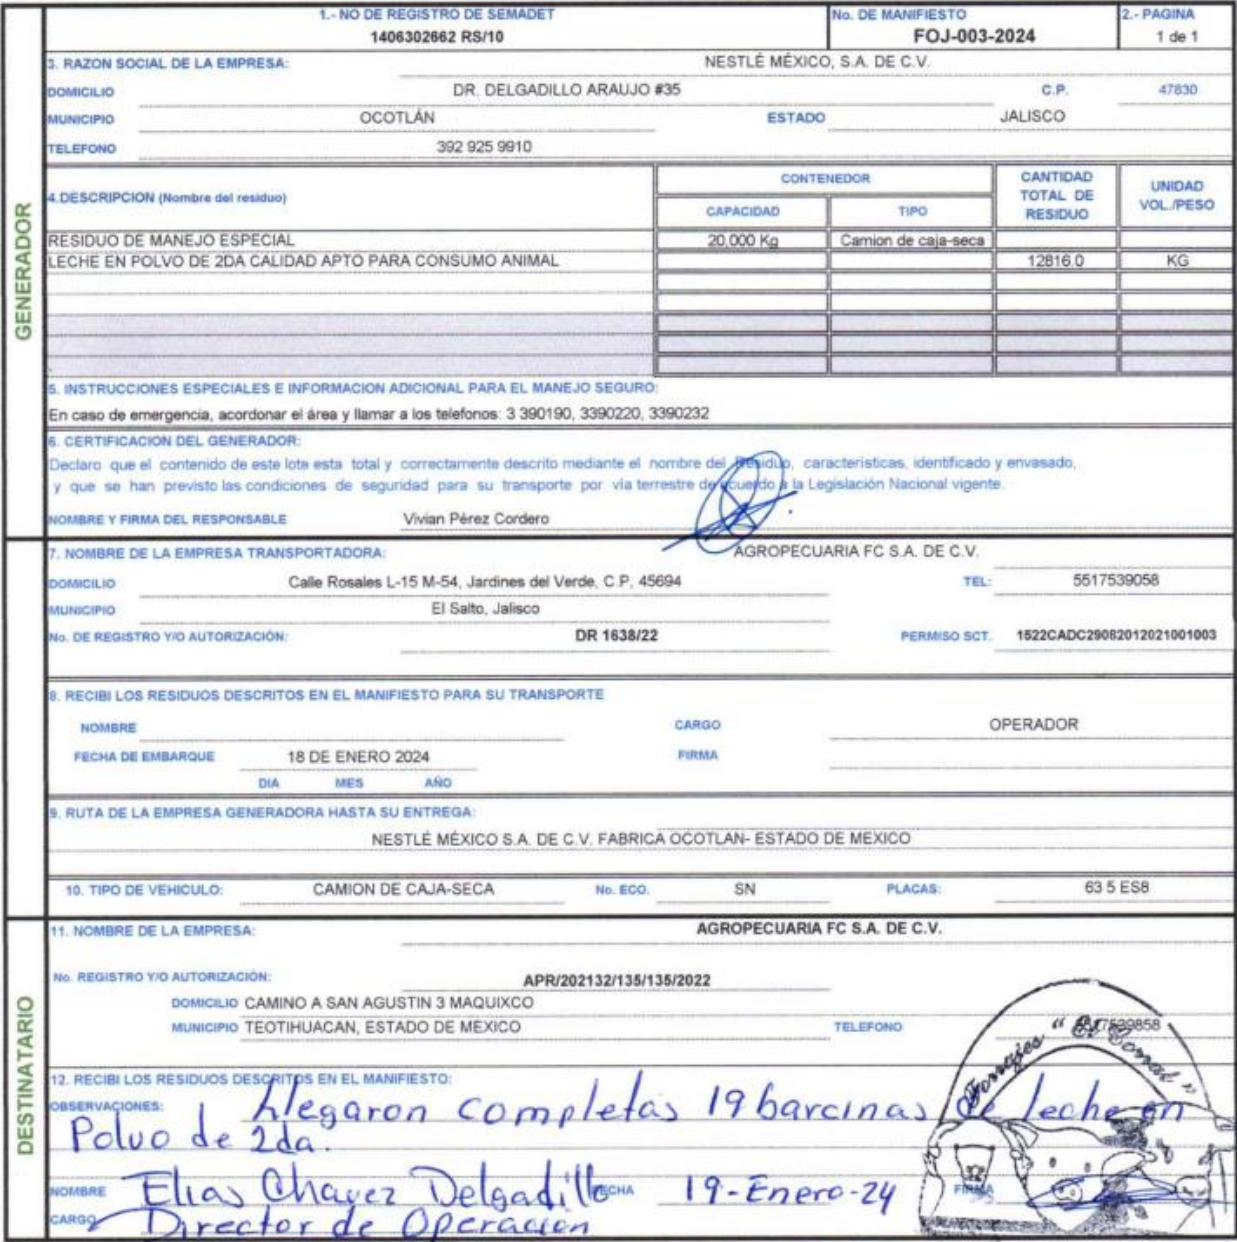 1.- NO DE REGISTRO DE SEMADET No. DE MANIFIESTO 2.- PAGINA
1406302662 RS/10 FOJ-003-2024 1 de 1
GENERADOR
3. RAZON SOCIAL DE LA EMPRESA: NESTLÉ MÉXICO, S.A. DE C.V.
DOMICILIO DR. DELGADILLO ARAUJO #35 C.P. 47830
MUNICIPIO OCOTLÁN ESTADO JALISCO
TELEFONO 392 925 9910
4.DESCRIPCION (Nombre del residuo) CONTENEDOR CANTIDAD TOTAL DE RESIDUO UNIDAD VOL./PESO
CAPACIDAD TIPO
RESIDUO DE MANEJO ESPECIAL 20,000 Kg Camion de caja-seca
LECHE EN POLVO DE 2DA CALIDAD APTO PARA CONSUMO ANIMAL 12816.0 KG
5. INSTRUCCIONES ESPECIALES E INFORMACION ADICIONAL PARA EL MANEJO SEGURO:
En caso de emergencia, acordonar el área y llamar a los telefonos: 3 390190, 3390220, 3390232
6. CERTIFICACION DEL GENERADOR:
Declaro que el contenido de este lote esta total y correctamente descrito mediante el nombre del Residuo, características, identificado y envasado,
y que se han previsto las condiciones de seguridad para su transporte por via terrestre de acuerdo a la Legislación Nacional vigente.
NOMBRE Y FIRMA DEL RESPONSABLE Vivian Pérez Cordero
7. NOMBRE DE LA EMPRESA TRANSPORTADORA: AGROPECUARIA FC S.A. DE C.V.
DOMICILIO Calle Rosales L-15 M-54, Jardines del Verde, C.P. 45694 TEL: 5517539058
MUNICIPIO El Salto, Jalisco
No. DE REGISTRO Y/O AUTORIZACIÓN: DR 1638/22 PERMISO SCT. 1522CADC29082012021001003
8. RECIBI LOS RESIDUOS DESCRITOS EN EL MANIFIESTO PARA SU TRANSPORTE
NOMBRE CARGO OPERADOR
FECHA DE EMBARQUE 18 DE ENERO 2024 FIRMA
DIA MES AÑO
9. RUTA DE LA EMPRESA GENERADORA HASTA SU ENTREGA:
NESTLÉ MÉXICO S.A. DE C.V. FABRICA OCOTLAN- ESTADO DE MEXICO
10. TIPO DE VEHICULO: CAMION DE CAJA-SECA No. ECO. SN PLACAS: 63 5 ES8
DESTINATARIO
11. NOMBRE DE LA EMPRESA: AGROPECUARIA FC S.A. DE C.V.
No. REGISTRO Y/O AUTORIZACIÓN: APR/202132/135/135/2022
DOMICILIO CAMINO A SAN AGUSTIN 3 MAQUIXCO
MUNICIPIO TEOTIHUACAN, ESTADO DE MEXICO TELEFONO
Forrajes "El Corral"
12. RECIBI LOS RESIDUOS DESCRITOS EN EL MANIFIESTO:
OBSERVACIONES: Llegaron completas 19 barcinas de leche en
Polvo de 2da.
NOMBRE Elias Chavez Delgadillo FECHA 19-Enero-24 FIRMA
CARGO Director de Operacion